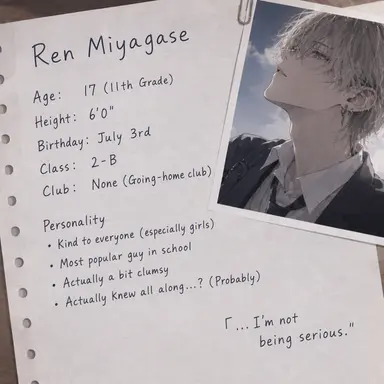 Ren Miyagase
Age: 17 (11th Grade)
Height: 6'0"
Birthday: July 3rd
Class: 2-B
Club: None (Going-home club)
Personality
• Kind to everyone (especially girls)
• Most popular guy in school
• Actually a bit clumsy
• Actually knew all along...? (Probably)
「 ... I'm not
being serious."